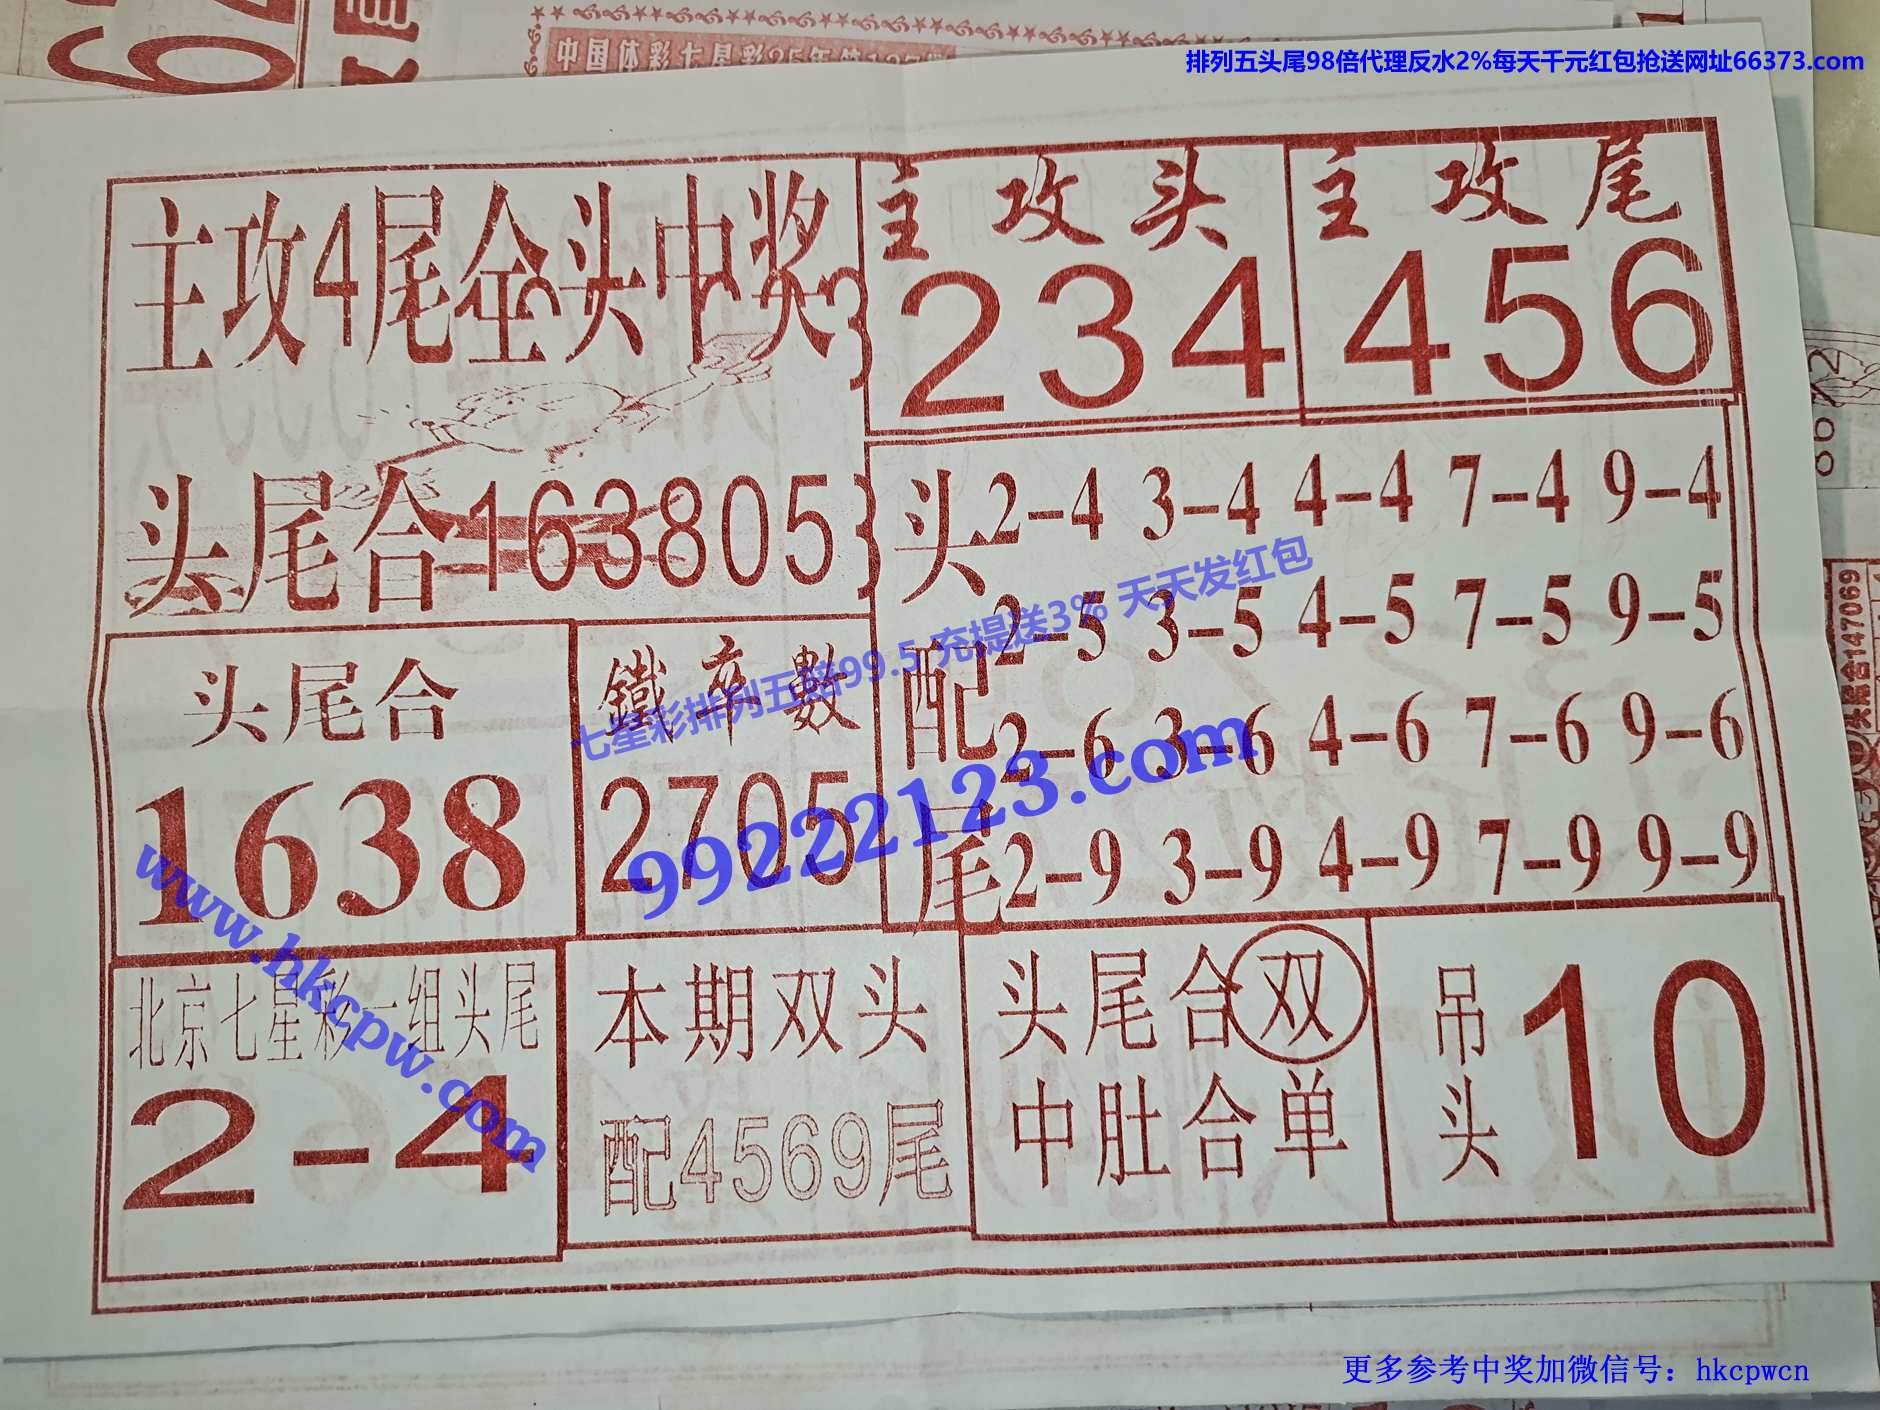 中国体彩七星彩25年第127期
排列五头尾98倍代理反水2%每天千元红包抢送网址66373.com
主攻4尾全头中奖
主攻头
234
主攻尾
456
头尾合163805
头配尾
2-4 3-4 4-4 7-4 9-4
2-5 3-5 4-5 7-5 9-5
2-6 3-6 4-6 7-6 9-6
2-9 3-9 4-9 7-9 9-9
头尾合
1638
鐵卒數
2705
七星彩排列五赔99.5 充提送3% 天天发红包
99222123.com
www.hkcpw.com
北京七星彩一组头尾
2-4
本期双头
配4569尾
头尾合双
中肚合单
吊头
10
头尾合147069
更多参考中奖加微信号：hkcpwcn